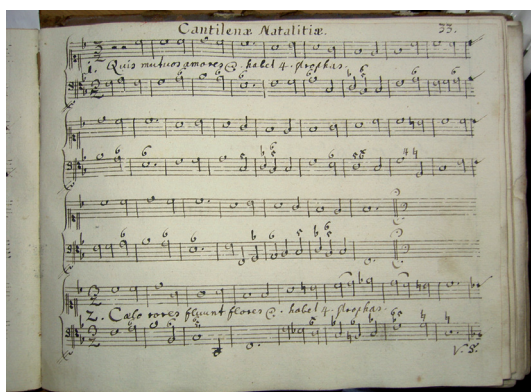 Cantilenæ Natalitiæ.
33.
1. Quis mutuos amores &. habet 4. strophas.
2. Cælo rores fluunt flores &. habet 4. strophas.
V. S.